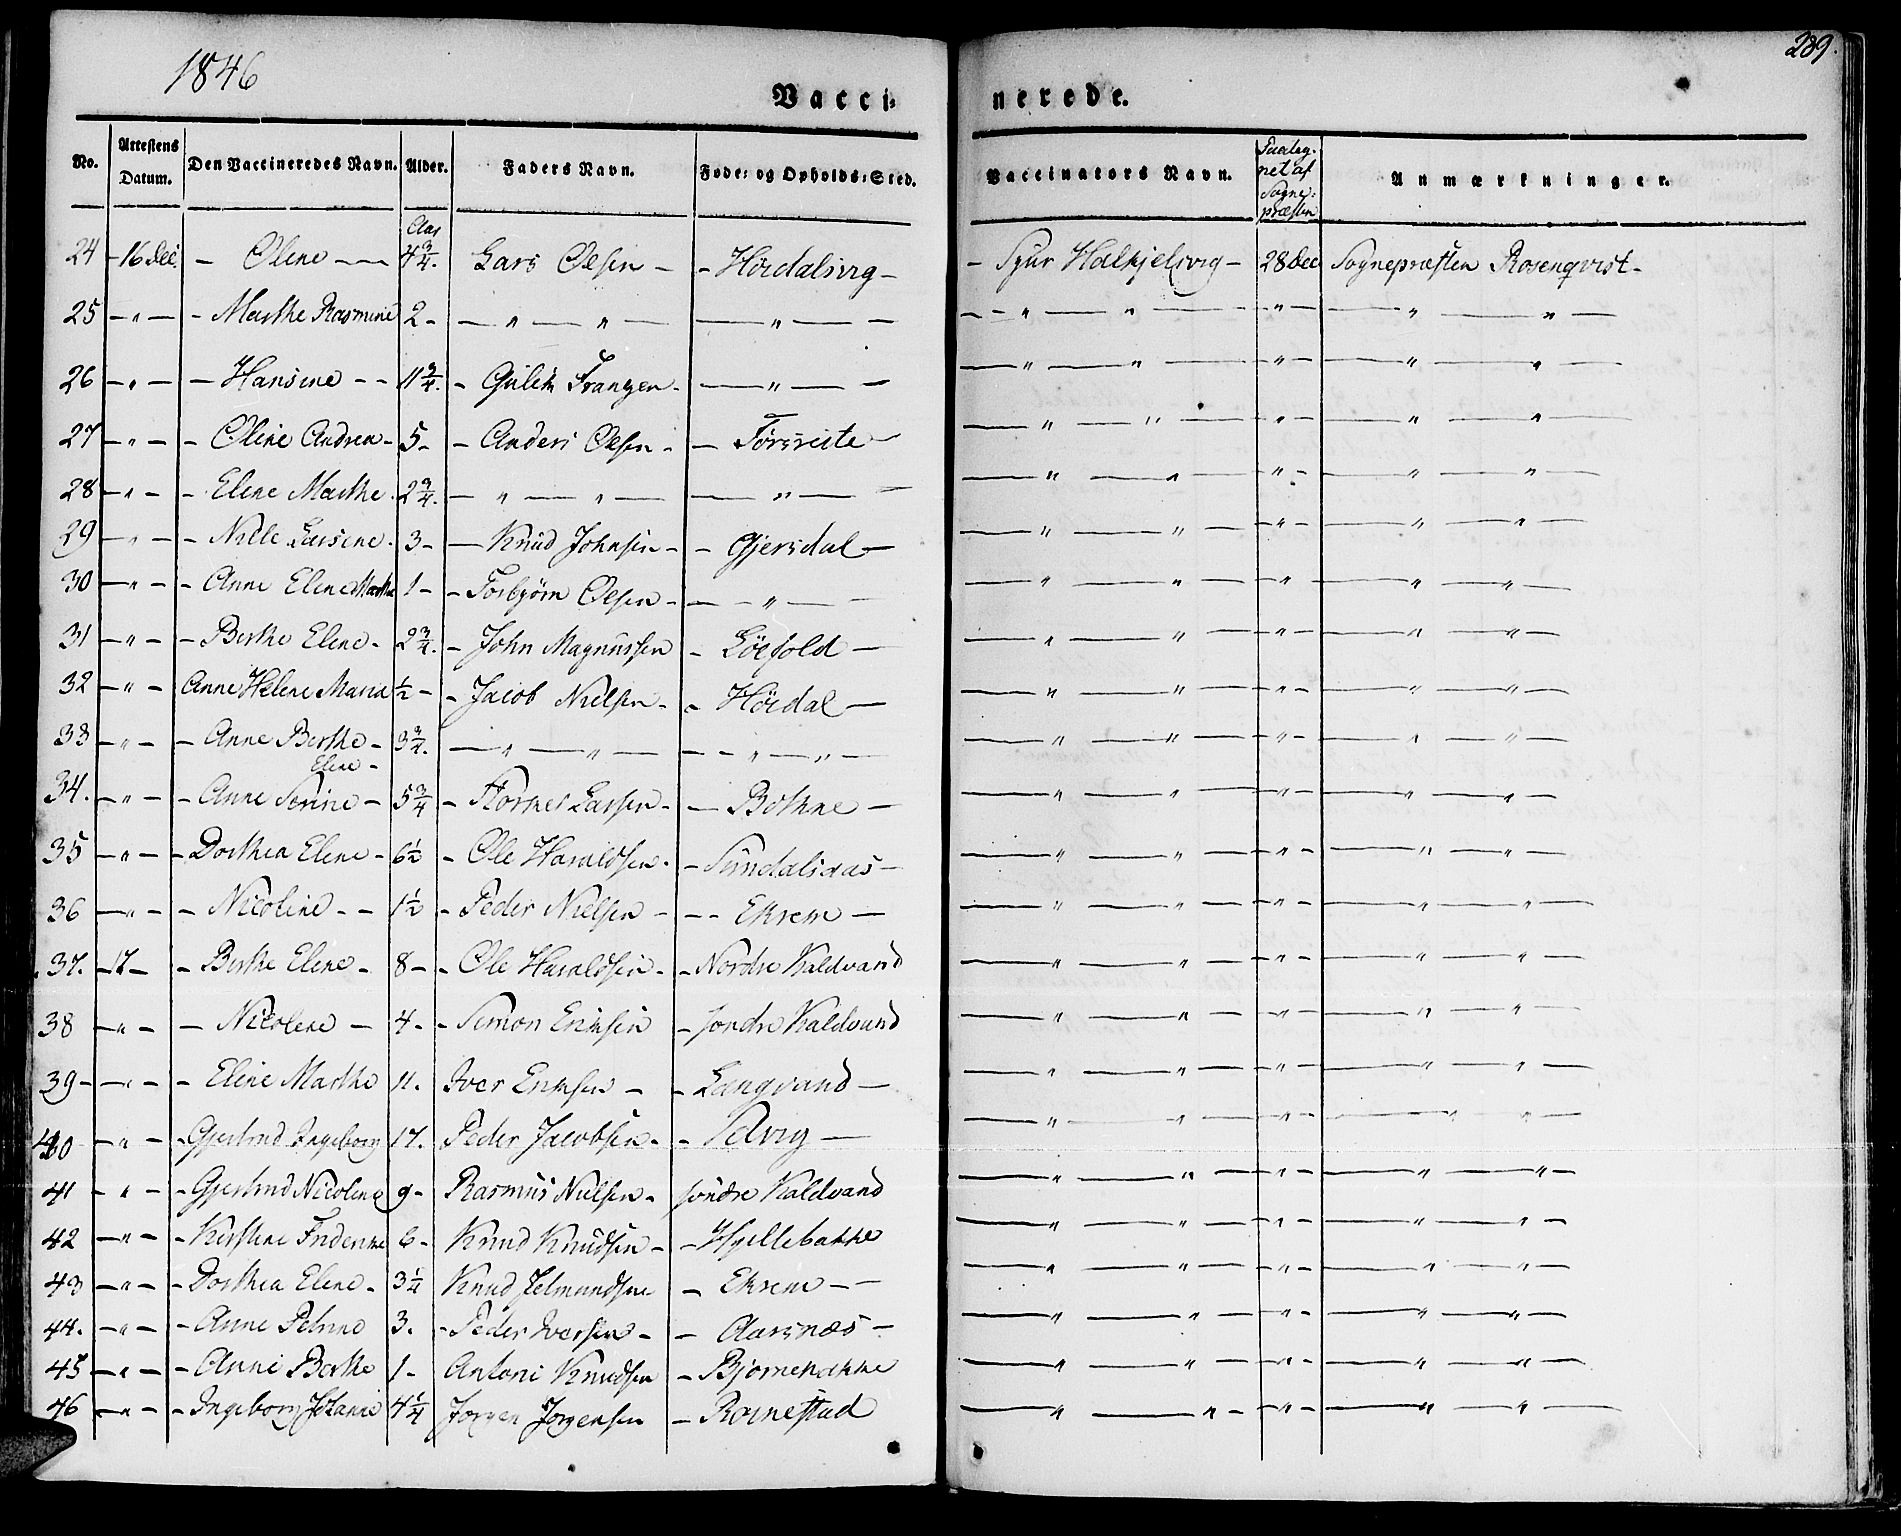 1846
289.
Vacci=
nerede.
No. Attestens Datum. Den Vaccineredes Navn. Alder. Faders Navn. Føde= og Opholds=Sted. Vaccinators Navn. Paateg- net af Sogne= præsten Anmærkninger.
Aar
24 - 16 Dec. - Olene - 4 3/4. Lars Olsen - - Hördalsvig - - Sjur Halkjelsvig - 28 Dec Sognepræsten Rosenqvist -
25 - " - - Marthe Rasmine 2 - - " - " - - " - - " - " - " - - " - " -
26 - " - - Hansine - - 11 3/4. - Gulik Frantzen - - " - - " - " - " - - " - " -
27 - " - - Oline Andrea - 5 - - Anders Olsen - - Försseite - - " - " - " - - " - " -
28 - " - - Elene Marthe. 2 3/4. - " - " - - " - - " - " - " - - " - " -
29 - " - - Nille Larsine. 3 - - Knud Johnsen - - Gjersdal - - " - " - " - - " - " -
30 - " - - Anne Elene Marthe 1 - - Torbjörn Olsen - - " - - " - " - " - - " - " -
31 - " - - Berthe Elene - 2 3/4. - John Magnussen - Löefold - - " - " - " - - " - " -
32 - " - Anne Helene Maria 1/2 - - Jacob Nielsen - - Hördal - - " - " - " - - " - " -
33 - " - - Anne Berthe - 3 3/4. - " - " - - - " - " - - " - " - " - - " - " -
Elene -
34. - " - - Anne Serine - 5 3/4 - Larsen - - Bothne - - " - " - " - - " - " -
35 - " - - Dorthea Elene - 6 1/2 - Ole Haraldsen. - Sundalsaas - - " - " - " - - " - " -
36 - " - - Nicoline - - 1 1/2 - Peder Nielsen - - - Ekrem - - " - " - " - - " - " -
37. - 17 - - Berthe Elene - 8 - - Ole Haraldsen - - Nordre Kaldvand - " - " - " - - " - " -
38 - " - - Nicolene - 4 - - Simon Eriksen - söndre Kaldvand - " - " - " - - " - " -
39 - - " - - Eline Marthe 11. Iver Eriksen - - Langvand - - " - " - " - - " - " -
40 - " - - Gjertrud Ingeborg 17. Peder Jacobsen - - Pelvig - - " - " - " - - " - " -
41 - " - - Gjertrud Nicoline 9 - Rasmus Nielsen - söndre Kaldvand - " - " - " - - " - " -
42 - " - - Kirstine Friderikke 6 - Knud Knudsen - - Hjellebakke - " - " - " - - " - " -
43 - " - - Dorthea Elene - 3 1/4 Knud Jetmundsen - Ekrem - - - " - " - " - - " - " -
44. - " - - Anne Petrine 3. - Peder Iversen - - Aarsnæs - - " - " - " - - " - " -
45 - " - - Anne Berthe 1 - Antoni Knudsen - Bjørnebakke - " - " - " - - " - " -
46 - " - - Ingeborg Johanne 4 1/4 Jorgen Jorgensen - Roinestad - " - " - " - - " - " -